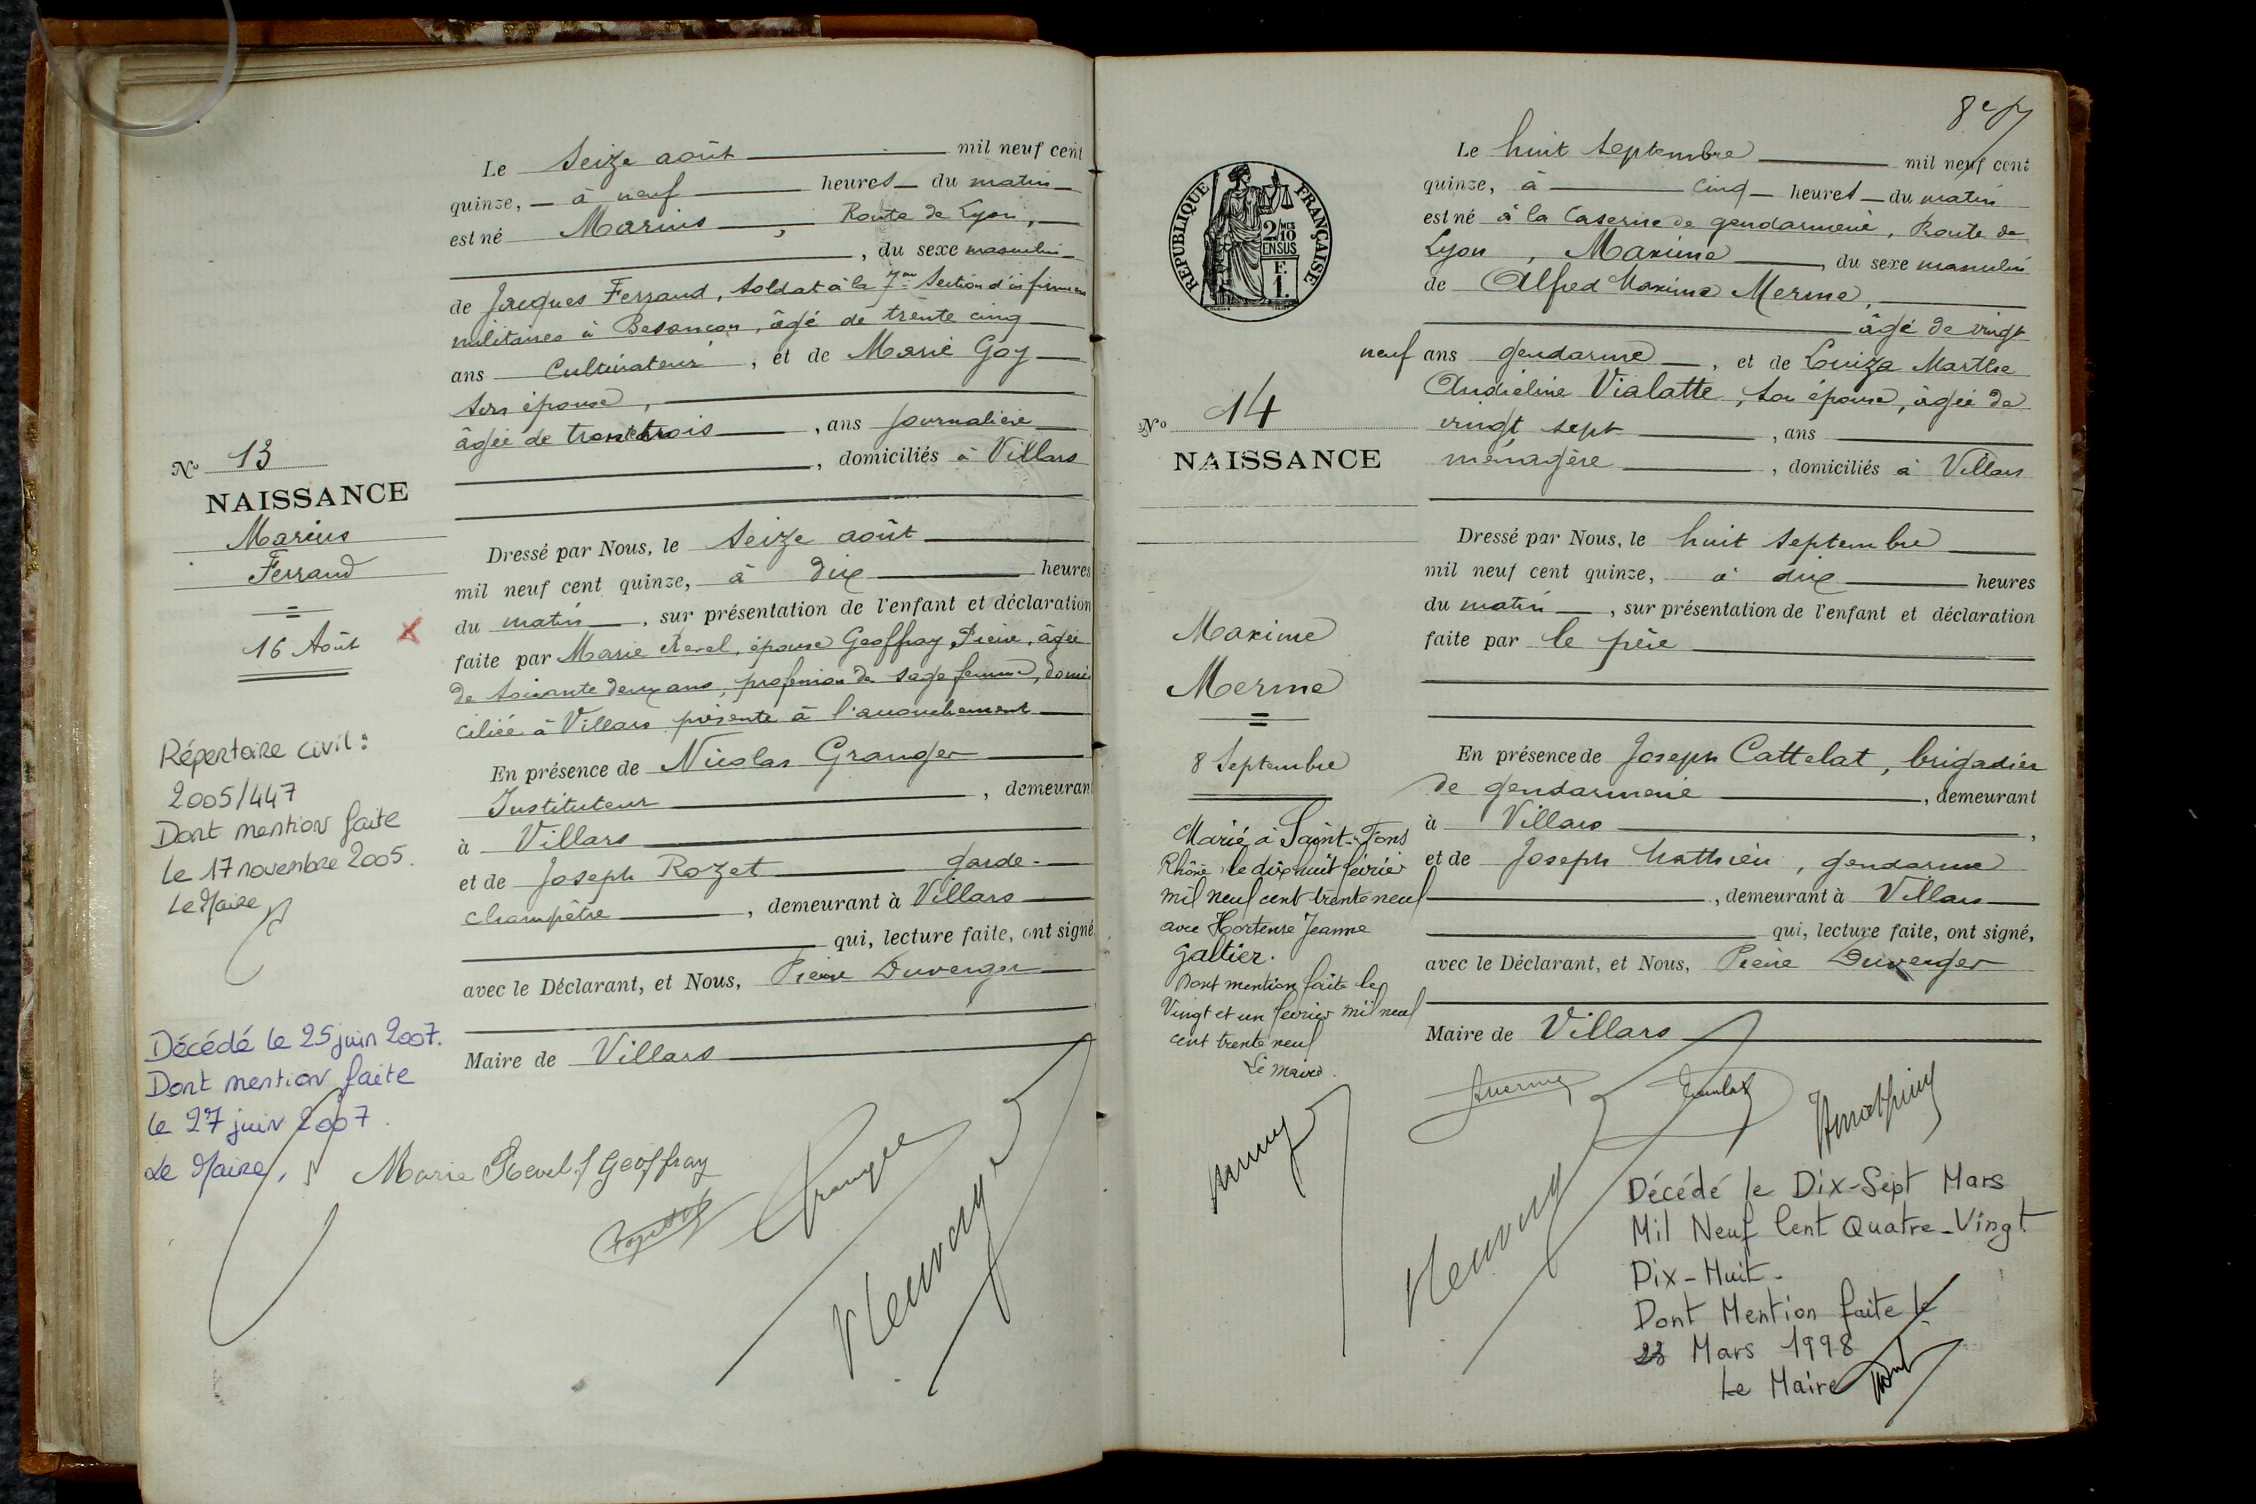 Le Seize août mil neuf cent
quinze, à neuf heures du matin
est né Marius, Route de Lyon,
, du sexe masculin
de Jacques Ferrand, soldat à la 7me Section d'infirmiers
militaires à Besançon, âgé de trente cinq
ans Cultivateur, et de Marie Goy
son épouse,
âgée de trente trois, ans journalière
, domiciliés à Villars
No 13
NAISSANCE
Marius
Ferrand
16 Août
X
Dressé par Nous, le Seize août
mil neuf cent quinze, à dix heures
du matin, sur présentation de l'enfant et déclaration
faite par Marie Revel, épouse Geoffray Pierre, âgée
de soixante deux ans, profession de sage femme, domi
ciliée à Villars présente à l'accouchement
En présence de Nicolas Granger
Instituteur, demeurant
à Villars
et de Joseph Rozet garde-
champêtre, demeurant à Villars
qui, lecture faite, ont signé
avec le Déclarant, et Nous, Pierre Duverger
Maire de Villars
Répertoire civil :
2005/447
Dont mention faite
le 17 novembre 2005.
Le Maire
Décédé le 25 juin 2007.
Dont mention faite
le 27 juin 2007.
Le Maire,
Marie Revel f Geoffray
Granger
8 Sep
REPUBLIQUE FRANÇAISE
2/10 MES
EN SUS
F.
1.
Le huit Septembre mil neuf cent
quinze, à cinq heures du matin
est né à la Caserne de gendarmerie, Route de
Lyon, Maxime, du sexe masculin
de Alfred Maxime Merme,
âgé de vingt
neuf ans gendarme, et de Luiza Marthe
Andréline Vialatte, son épouse, âgée de
vingt sept, ans
ménagère, domiciliés à Villars
No 14
NAISSANCE
Maxime
Merme
8 Septembre
Dressé par Nous, le huit Septembre
mil neuf cent quinze, à dix heures
du matin, sur présentation de l'enfant et déclaration
faite par le père
En présence de Joseph Cattelat, brigadier
de gendarmerie, demeurant
à Villars,
et de Joseph Mathieu, gendarme
, demeurant à Villars
qui, lecture faite, ont signé,
avec le Déclarant, et Nous, Pierre Duverger
Maire de Villars
Marié à Saint-Fons
Rhône, le dix huit février
mil neuf cent trente neuf
avec Hortense Jeanne
Galtier.
Dont mention faite le
Vingt et un février mil neuf
cent trente neuf
Le maire.
Décédé le Dix-Sept Mars
Mil Neuf Cent Quatre-Vingt
Dix-Huit.
Dont Mention faite le
23 Mars 1998
Le Maire